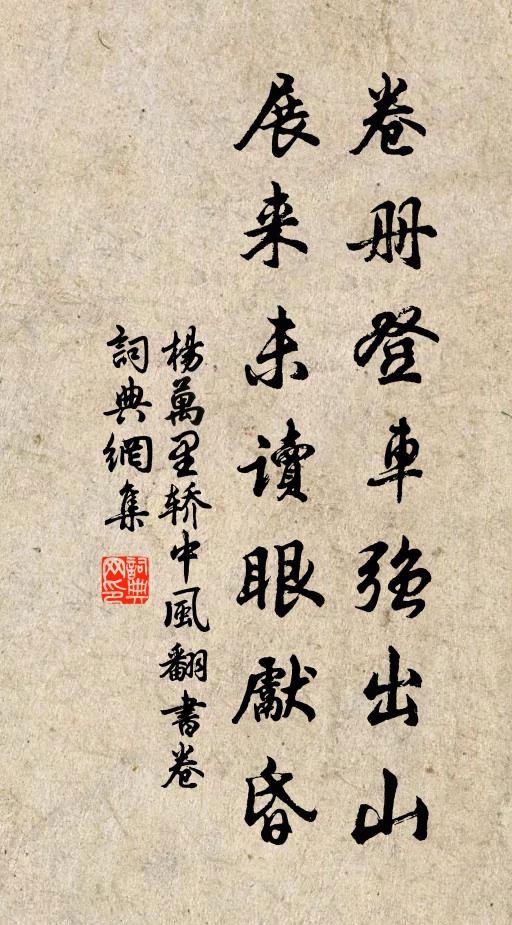 卷册登車強出山
展来未讀眼獻昏
楊萬里轿中風翻書卷
詞典網集
詞典网印